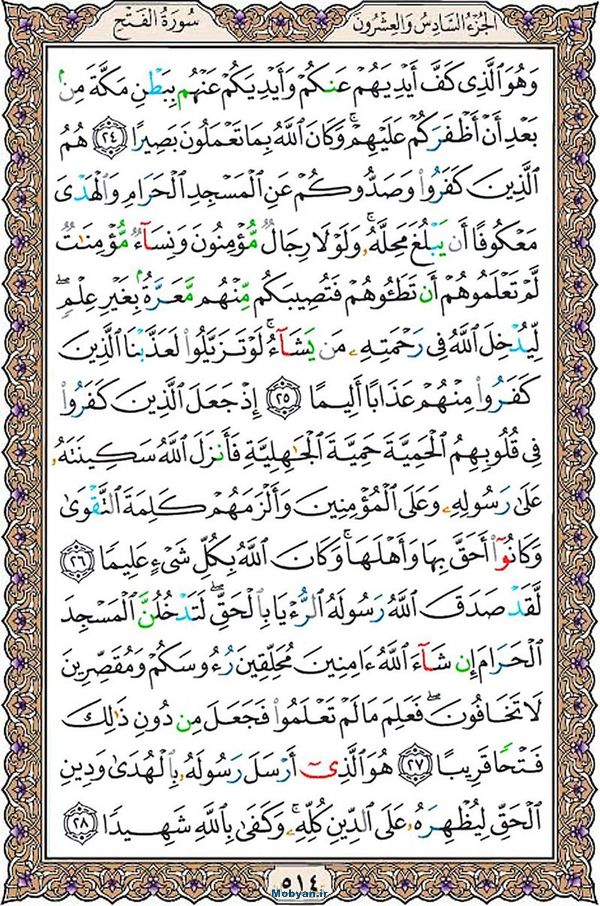 الجُزءُ السَّادِسُ وَالعِشْرُونَ
سُورَةُ الفَتْحِ
وَهُوَ ٱلَّذِى كَفَّ أَيْدِيَهُمْ عَنكُمْ وَأَيْدِيَكُمْ عَنْهُم بِبَطْنِ مَكَّةَ مِنۢ
بَعْدِ أَنْ أَظْفَرَكُمْ عَلَيْهِمْ ۚ وَكَانَ ٱللَّهُ بِمَا تَعْمَلُونَ بَصِيرًا ٢٤ هُمُ
ٱلَّذِينَ كَفَرُوا۟ وَصَدُّوكُمْ عَنِ ٱلْمَسْجِدِ ٱلْحَرَامِ وَٱلْهَدْىَ
مَعْكُوفًا أَن يَبْلُغَ مَحِلَّهُۥ ۚ وَلَوْلَا رِجَالٌ مُّؤْمِنُونَ وَنِسَآءٌ مُّؤْمِنَـٰتٌ
لَّمْ تَعْلَمُوهُمْ أَن تَطَـُٔوهُمْ فَتُصِيبَكُم مِّنْهُم مَّعَرَّةٌۢ بِغَيْرِ عِلْمٍ ۖ
لِّيُدْخِلَ ٱللَّهُ فِى رَحْمَتِهِۦ مَن يَشَآءُ ۚ لَوْ تَزَيَّلُوا۟ لَعَذَّبْنَا ٱلَّذِينَ
كَفَرُوا۟ مِنْهُمْ عَذَابًا أَلِيمًا ٢٥ إِذْ جَعَلَ ٱلَّذِينَ كَفَرُوا۟
فِى قُلُوبِهِمُ ٱلْحَمِيَّةَ حَمِيَّةَ ٱلْجَـٰهِلِيَّةِ فَأَنزَلَ ٱللَّهُ سَكِينَتَهُۥ
عَلَىٰ رَسُولِهِۦ وَعَلَى ٱلْمُؤْمِنِينَ وَأَلْزَمَهُمْ كَلِمَةَ ٱلتَّقْوَىٰ
وَكَانُوٓا۟ أَحَقَّ بِهَا وَأَهْلَهَا ۚ وَكَانَ ٱللَّهُ بِكُلِّ شَىْءٍ عَلِيمًا ٢٦
لَّقَدْ صَدَقَ ٱللَّهُ رَسُولَهُ ٱلرُّءْيَا بِٱلْحَقِّ ۖ لَتَدْخُلُنَّ ٱلْمَسْجِدَ
ٱلْحَرَامَ إِن شَآءَ ٱللَّهُ ءَامِنِينَ مُحَلِّقِينَ رُءُوسَكُمْ وَمُقَصِّرِينَ
لَا تَخَافُونَ ۖ فَعَلِمَ مَا لَمْ تَعْلَمُوا۟ فَجَعَلَ مِن دُونِ ذَٰلِكَ
فَتْحًا قَرِيبًا ٢٧ هُوَ ٱلَّذِىٓ أَرْسَلَ رَسُولَهُۥ بِٱلْهُدَىٰ وَدِينِ
ٱلْحَقِّ لِيُظْهِرَهُۥ عَلَى ٱلدِّينِ كُلِّهِۦ ۚ وَكَفَىٰ بِٱللَّهِ شَهِيدًا ٢٨
٥١٤
Mobyan.ir